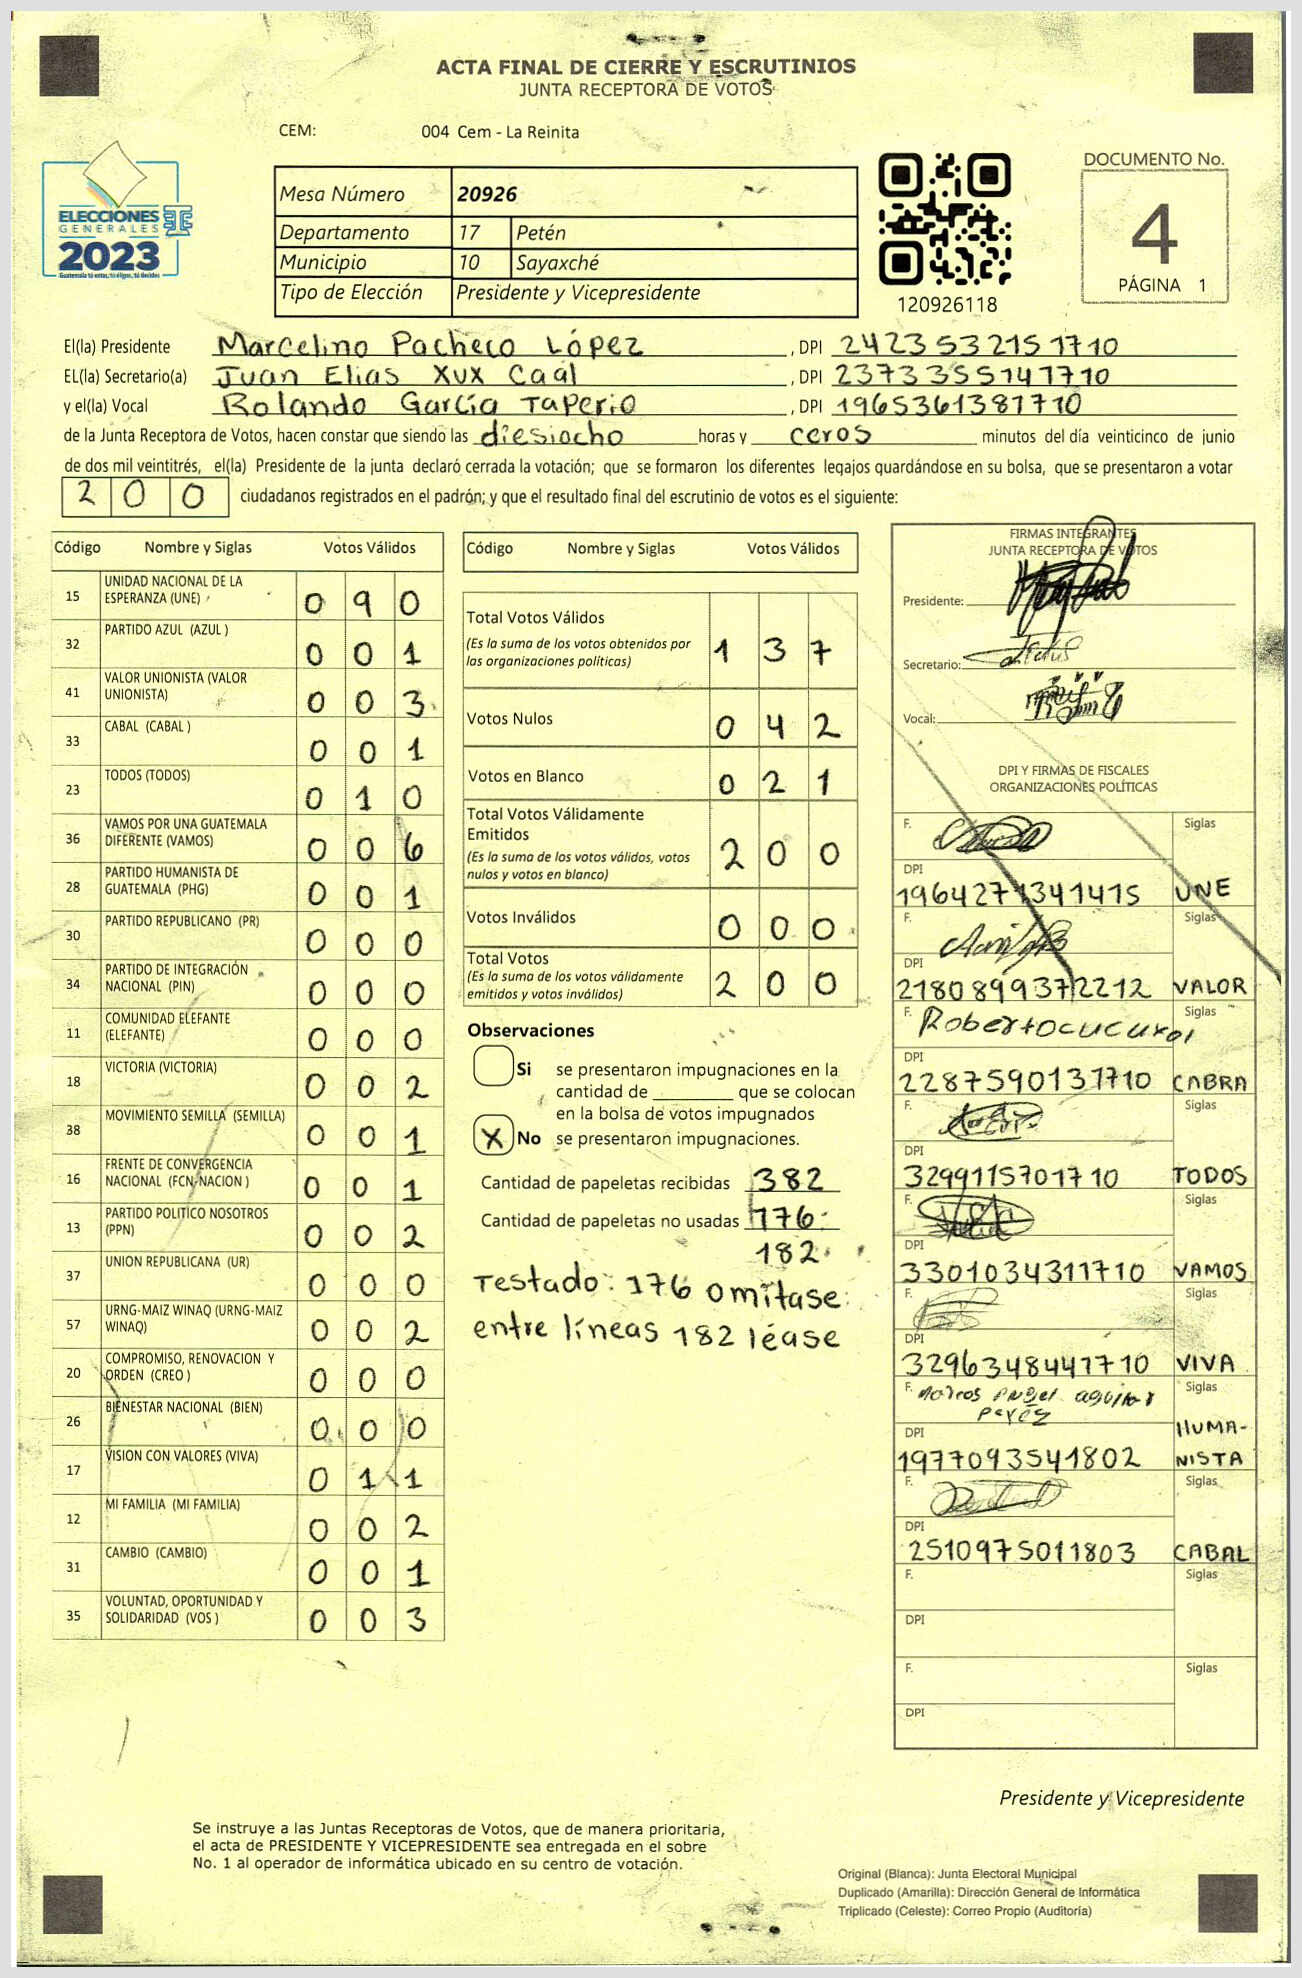 ACTA FINAL DE CIERRE Y ESCRUTINIOS
JUNTA RECEPTORA DE VOTOS
CEM: 004 Cem - La Reinita
ELECCIONES
GENERALES
2023
Guatemala tú entras, tú eliges, tú decides
Mesa Número 20926
Departamento 17 Petén
Municipio 10 Sayaxché
Tipo de Elección Presidente y Vicepresidente
120926118
DOCUMENTO No.
4
PÁGINA 1
El(la) Presidente Marcelino Pacheco López , DPI 2423532151710
EL(la) Secretario(a) Juan Elias Xux Caal , DPI 2373355141710
y el(la) Vocal Rolando García Taperio , DPI 1965361381710
de la Junta Receptora de Votos, hacen constar que siendo las diesiocho horas y ceros minutos del día veinticinco de junio
de dos mil veintitrés, el(la) Presidente de la junta declaró cerrada la votación; que se formaron los diferentes legajos quardándose en su bolsa, que se presentaron a votar
200 ciudadanos registrados en el padrón; y que el resultado final del escrutinio de votos es el siguiente:
Código Nombre y Siglas Votos Válidos
15 UNIDAD NACIONAL DE LA ESPERANZA (UNE) 0 9 0
32 PARTIDO AZUL (AZUL ) 0 0 1
41 VALOR UNIONISTA (VALOR UNIONISTA) 0 0 3
33 CABAL (CABAL ) 0 0 1
23 TODOS (TODOS) 0 1 0
36 VAMOS POR UNA GUATEMALA DIFERENTE (VAMOS) 0 0 6
28 PARTIDO HUMANISTA DE GUATEMALA (PHG) 0 0 1
30 PARTIDO REPUBLICANO (PR) 0 0 0
34 PARTIDO DE INTEGRACIÓN NACIONAL (PIN) 0 0 0
11 COMUNIDAD ELEFANTE (ELEFANTE) 0 0 0
18 VICTORIA (VICTORIA) 0 0 2
38 MOVIMIENTO SEMILLA (SEMILLA) 0 0 1
16 FRENTE DE CONVERGENCIA NACIONAL (FCN-NACION ) 0 0 1
13 PARTIDO POLITICO NOSOTROS (PPN) 0 0 2
37 UNION REPUBLICANA (UR) 0 0 0
57 URNG-MAIZ WINAQ (URNG-MAIZ WINAQ) 0 0 2
20 COMPROMISO, RENOVACION Y ORDEN (CREO ) 0 0 0
26 BIENESTAR NACIONAL (BIEN) 0 0 0
17 VISION CON VALORES (VIVA) 0 1 1
12 MI FAMILIA (MI FAMILIA) 0 0 2
31 CAMBIO (CAMBIO) 0 0 1
35 VOLUNTAD, OPORTUNIDAD Y SOLIDARIDAD (VOS ) 0 0 3
Código Nombre y Siglas Votos Válidos
Total Votos Válidos 1 3 7
(Es la suma de los votos obtenidos por
las organizaciones políticas)
Votos Nulos 0 4 2
Votos en Blanco 0 2 1
Total Votos Válidamente
Emitidos 2 0 0
(Es la suma de los votos válidos, votos
nulos y votos en blanco)
Votos Inválidos 0 0 0
Total Votos 2 0 0
(Es la suma de los votos válidamente
emitidos y votos inválidos)
Observaciones
Si se presentaron impugnaciones en la
cantidad de ________ que se colocan
en la bolsa de votos impugnados
X No se presentaron impugnaciones.
Cantidad de papeletas recibidas 382
Cantidad de papeletas no usadas 176
182
Testado: 176 omitase
entre líneas 182 léase
FIRMAS INTEGRANTES
JUNTA RECEPTORA DE VOTOS
Presidente:
Secretario:
Vocal:
DPI Y FIRMAS DE FISCALES
ORGANIZACIONES POLÍTICAS
F. Siglas
DPI
1964271341415 UNE
F. Siglas
DPI
2180899372212 VALOR
F. Robertocucuxol Siglas
DPI
2287590131710 CABRA
F. Siglas
DPI
3299115701710 TODOS
F. Siglas
DPI
3301034311710 VAMOS
F. Siglas
DPI
3296348441710 VIVA
F. Marcos Angel aguilar Siglas
perez
DPI HUMA-
1977093541802 NISTA
F. Siglas
DPI
2510975011803 CABAL
F. Siglas
DPI
F. Siglas
DPI
Presidente y Vicepresidente
Se instruye a las Juntas Receptoras de Votos, que de manera prioritaria,
el acta de PRESIDENTE Y VICEPRESIDENTE sea entregada en el sobre
No. 1 al operador de informática ubicado en su centro de votación.
Original (Blanca): Junta Electoral Municipal
Duplicado (Amarilla): Dirección General de Informática
Triplicado (Celeste): Correo Propio (Auditoría)